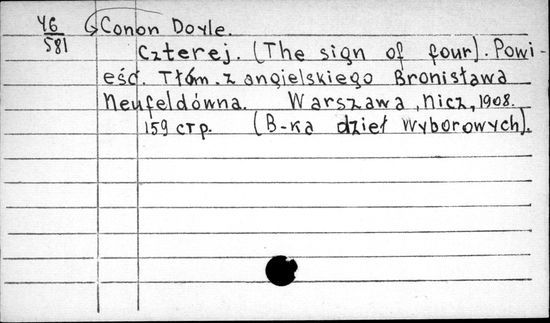 46
581
Conon Doyle.
Czterej. (The sign of four). Powi-
eść. Tłóm. z angielskiego Bronisława
Neufeldówna. Warszawa, Nicz, 1908.
159 стр. (B-ka dzieł wyborowych).